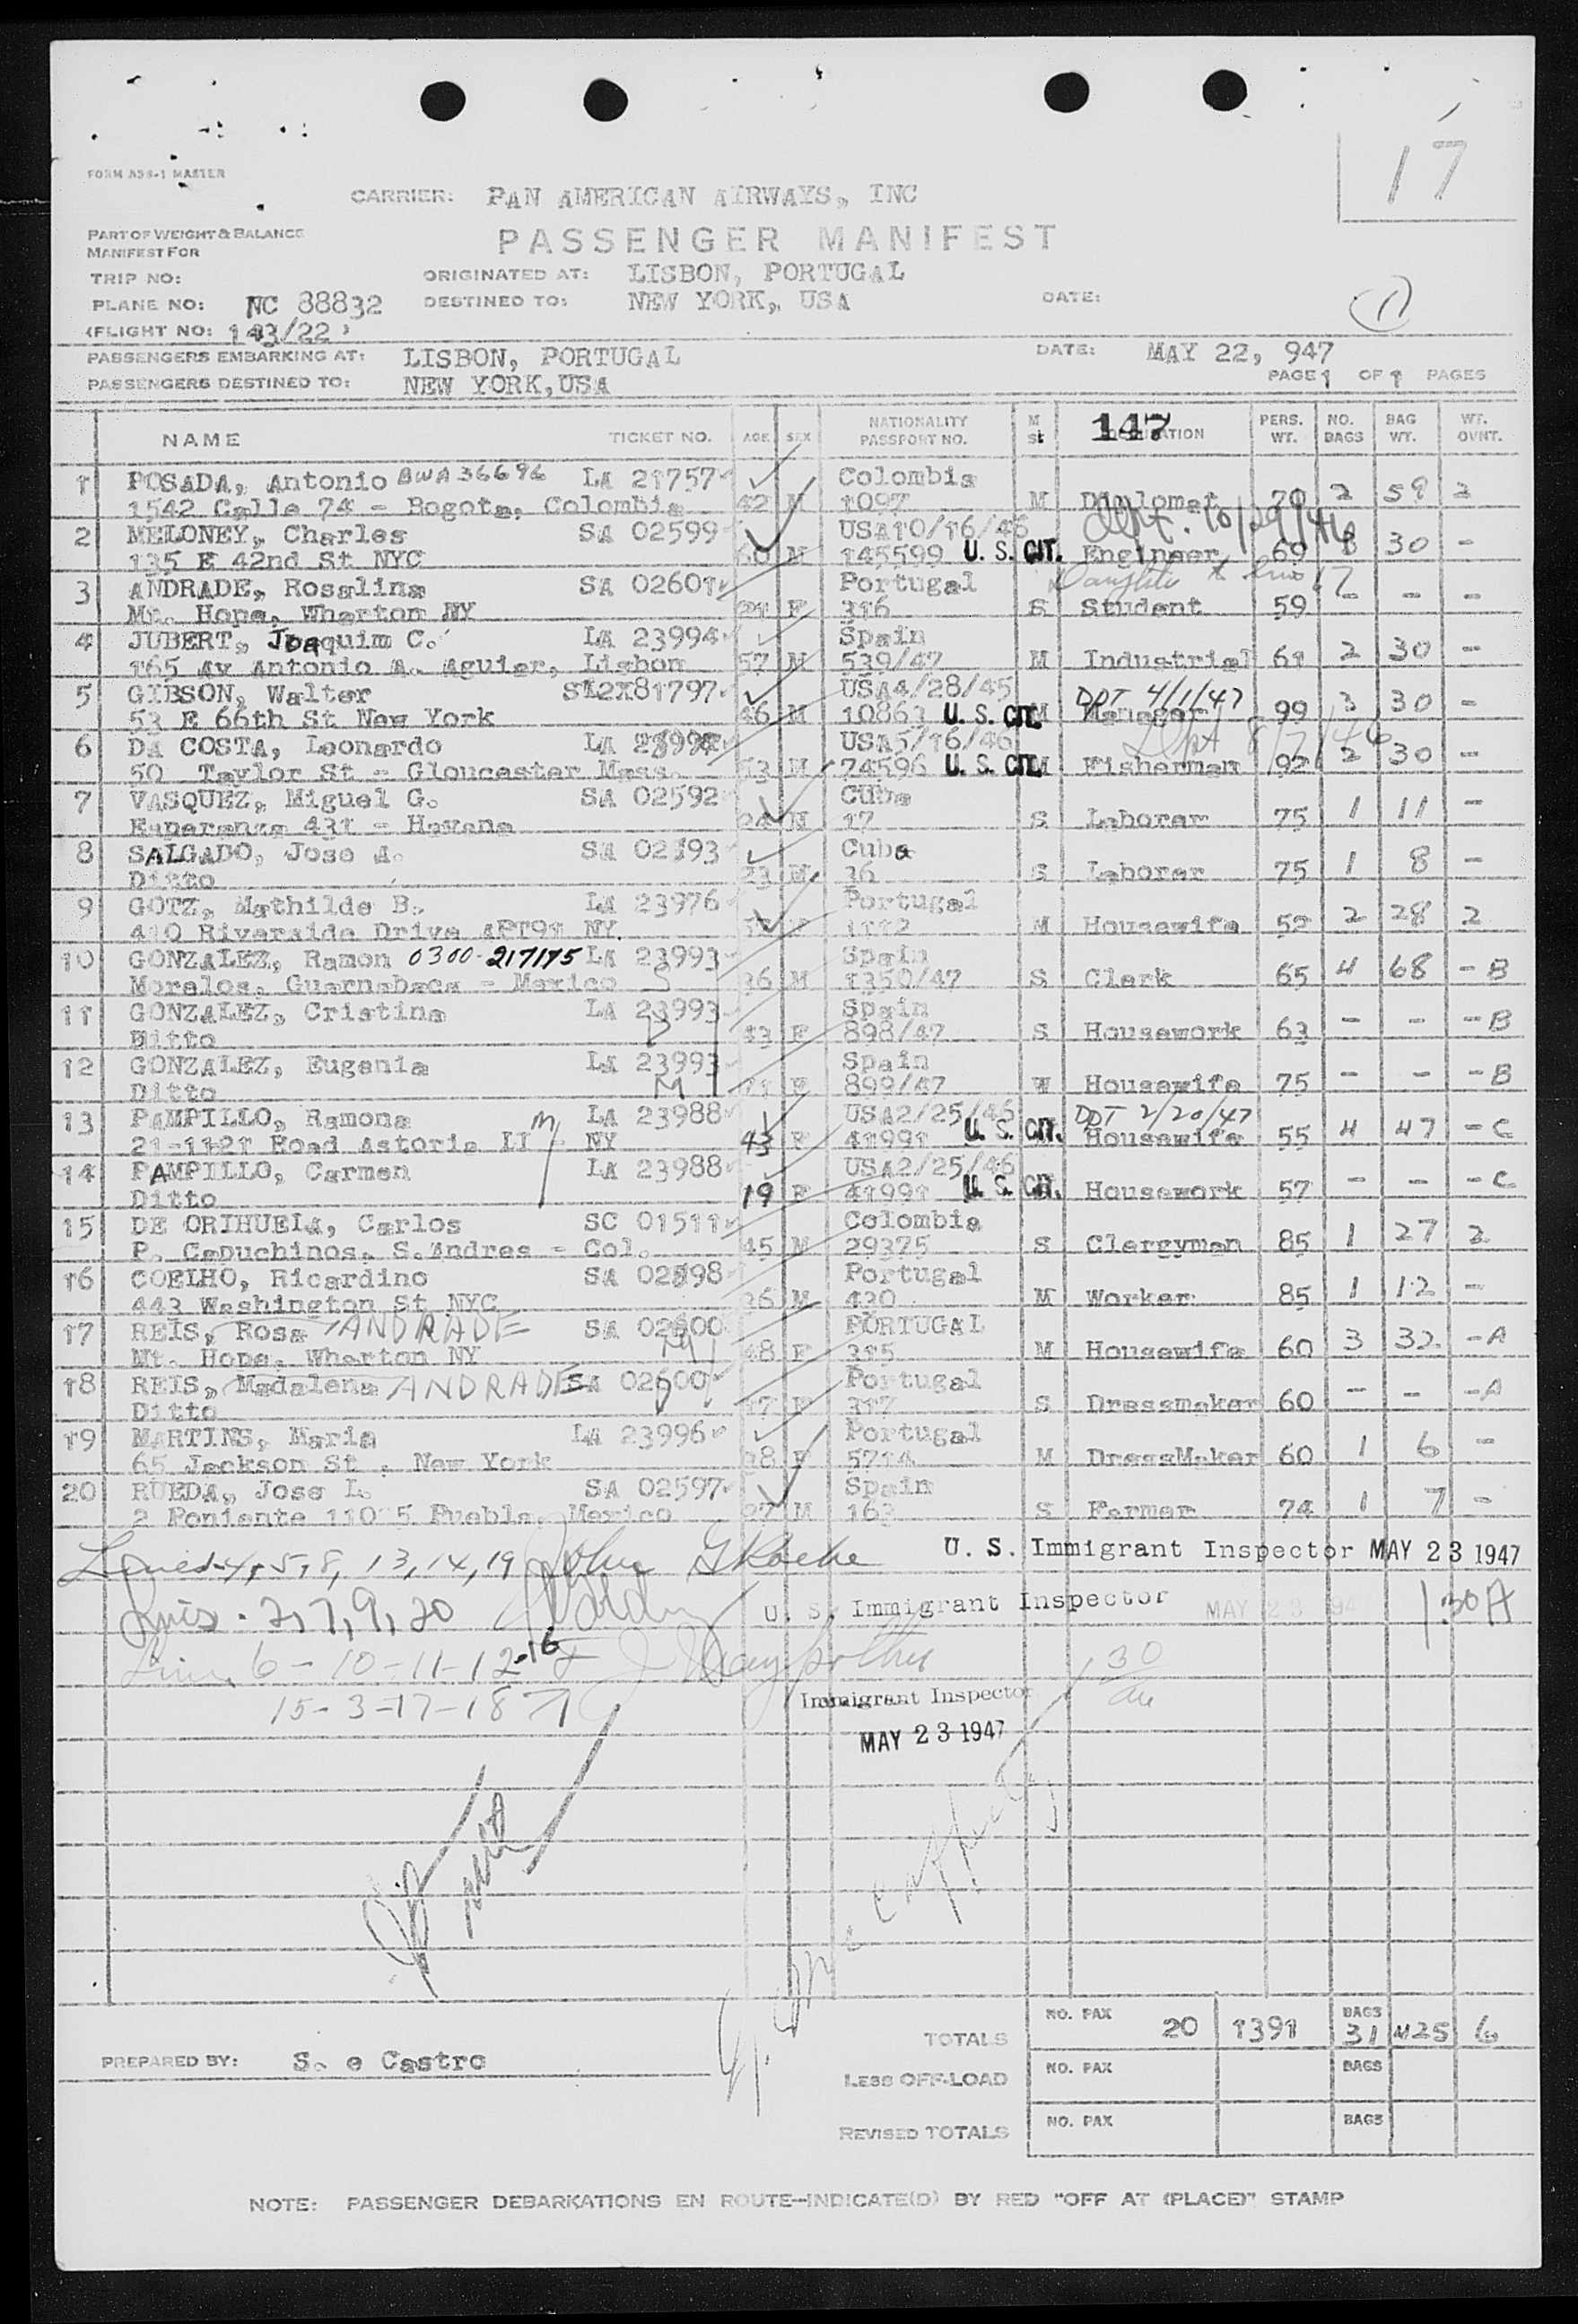 17
FORM ASS-1 MASTER
CARRIER: PAN AMERICAN AIRWAYS, INC
PART OF WEIGHT & BALANCE
MANIFEST FOR
PASSENGER MANIFEST
TRIP NO: ORIGINATED AT: LISBON, PORTUGAL
PLANE NO: NC 88832 DESTINED TO: NEW YORK, USA DATE:
(FLIGHT NO: 143/22) 1
PASSENGERS EMBARKING AT: LISBON, PORTUGAL DATE: MAY 22, 947
PASSENGERS DESTINED TO: NEW YORK,USA PAGE 1 OF 1 PAGES
NAME TICKET NO. AGE SEX NATIONALITY PASSPORT NO. M St 147 PERS. WT. NO. BAGS BAG WT. WT. OVNT.
1 POSADA, Antonio BWA36696 LA 21757 Colombia
1542 Calle 74 - Bogota, Colombia 42 M 1097 M Diplomat 70 2 59 2
2 MELONEY, Charles SA 02599 USA10/16/46 Dept. 10/29/46
135 E 42nd St NYC 60 M 145599 U. S. CIT. Engineer 69 3 30 -
3 ANDRADE, Rosalina SA 02601 Portugal Daughter to line 17
Mt. Hope, Wharton NY 21 F 316 S Student 59 - - -
4 JUBERT, Joaquim C. LA 23994 Spain
165 Av Antonio A. Aguiar, Lisbon 57 M 539/47 M Industrial 61 2 30 -
5 GIBSON, Walter 81797 USA4/28/45 DPT 4/1/47
53 E 66th St New York 46 M 10863 U. S. CIT. M Manager 99 3 30 -
6 DA COSTA, Leonardo LA USA5/16/46 Dept 8/7/46
50 Taylor St - Gloucester Mass. 53 M 74596 U. S. CIT. M Fisherman 92 2 30 -
7 VASQUEZ, Miguel G. SA 02592 Cuba
Esperanza 431 - Havana 24 M 17 S Laborer 75 1 11 -
8 SALGADO, Jose A. SA 02593 Cuba
Ditto 23 M 36 S Laborer 75 1 8 -
9 GOTZ, Mathilde B. LA 23976 Portugal
410 Riverside Drive APT91 NY. 1112 M Housewife 52 2 28 2
10 GONZALEZ, Ramon 0300-217175 LA 23993 Spain
Morelos, Guarnabaca - Mexico S 36 M 1350/47 S Clerk 65 4 68 - B
11 GONZALEZ, Cristina LA 23993 Spain
Ditto D 43 F 898/47 S Housework 63 - - - B
12 GONZALEZ, Eugenia LA 23993 Spain
Ditto M 71 F 899/47 W Housewife 75 - - - B
13 PAMPILLO, Ramona LA 23988 USA2/25/46 DPT 2/20/47
21-1121 Road Astoria LI M NY 43 F 41991 U. S. CIT. Housewife 55 4 47 - C
14 PAMPILLO, Carmen LA 23988 USA2/25/46
Ditto 19 F 41991 U. S. CIT. Housework 57 - - - C
15 DE ORIHUELA, Carlos SC 01511 Colombia
P. Capuchinos, S. Andres - Col. 45 M 29375 S Clergyman 85 1 27 2
16 COELHO, Ricardino SA 02598 Portugal
443 Washington St NYC 36 M 430 M Worker 85 1 12 -
17 REIS, Rosa ANDRADE SA 02600 PORTUGAL
Mt. Hope, Wharton NY M 48 F 315 M Housewife 60 3 32 - A
18 REIS, Madalena ANDRADE SA 02600 Portugal
Ditto D 17 F 317 S Dressmaker 60 - - - A
19 MARTINS, Maria LA 23996 Portugal
65 Jackson St, New York 38 F 5714 M DressMaker 60 1 6 -
20 RUEDA, Jose L. SA 02597 Spain
2 Poniente 1105 Puebla, Mexico 27 M 163 S Farmer 74 1 7 -
Lines 1-4, 5, 8, 13, 14, 19 John G Roche U. S. Immigrant Inspector MAY 23 1947
Lines. 2, 7, 9, 20 U. S. Immigrant Inspector MAY 23 1947 130 A
Line 6-10-11-12-16 130
15-3-17-18 Immigrant Inspector
MAY 23 1947
TOTALS NO. PAX 20 1391 BAGS 31 425 6
PREPARED BY: S. e Castro
LESS OFF-LOAD NO. PAX BAGS
REVISED TOTALS NO. PAX BAGS
NOTE: PASSENGER DEBARKATIONS EN ROUTE-INDICATE(D) BY RED "OFF AT (PLACE)" STAMP